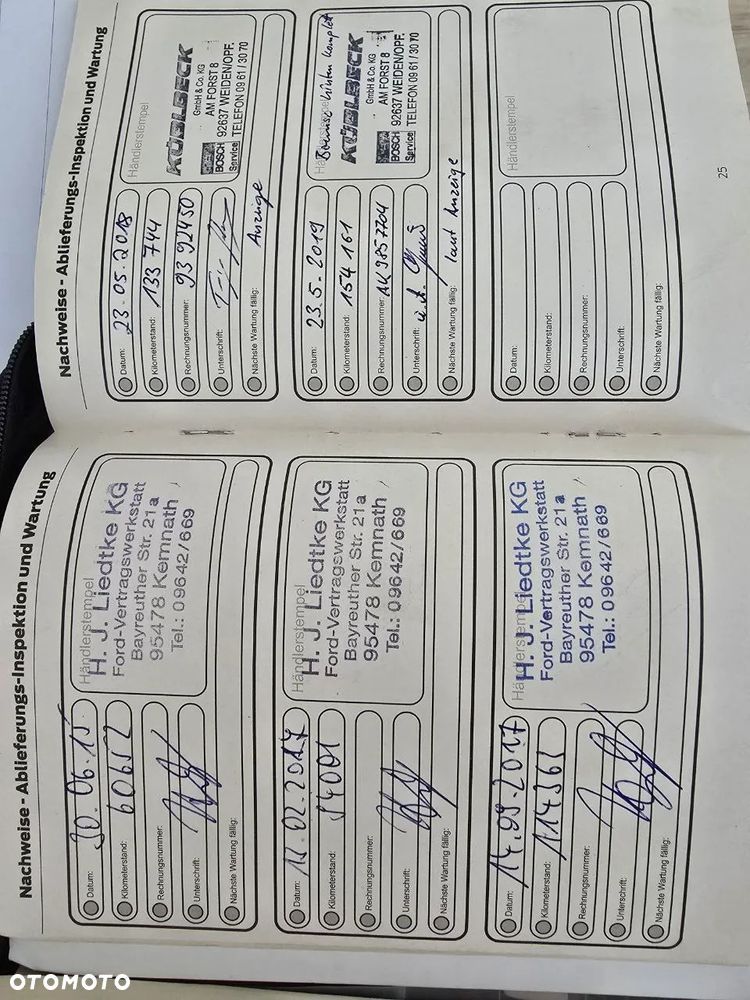 Nachweise - Ablieferungs-Inspektion und Wartung
Datum: 30.06.15
Kilometerstand: 60652
Rechnungsnummer:
Unterschrift:
Nächste Wartung fällig:
Händlerstempel
H. J. Liedtke KG
Ford-Vertragswerkstatt
Bayreuther Str. 21a
95478 Kemnath
Tel.: 09642/669
Datum: 12.02.2017
Kilometerstand:
Rechnungsnummer:
Unterschrift:
Nächste Wartung fällig:
Händlerstempel
H. J. Liedtke KG
Ford-Vertragswerkstatt
Bayreuther Str. 21a
95478 Kemnath
Tel.: 09642/669
Datum: 14.09.2017
Kilometerstand: 114361
Rechnungsnummer:
Unterschrift:
Nächste Wartung fällig:
Händlerstempel
H. J. Liedtke KG
Ford-Vertragswerkstatt
Bayreuther Str. 21a
95478 Kemnath
Tel.: 09642/669
Nachweise - Ablieferungs-Inspektion und Wartung
Datum: 23.05.2018
Kilometerstand: 133 744
Rechnungsnummer: 93 92450
Unterschrift:
Nächste Wartung fällig: Anzeige
Händlerstempel
KÜBLBECK
GmbH & Co. KG
AM FORST 8
BOSCH 92637 WEIDEN/OPF.
Service TELEFON 09 61 / 30 70
Datum: 23.5.2019
Kilometerstand: 154 161
Rechnungsnummer: AK9857704
Unterschrift: i.A.
Nächste Wartung fällig: laut Anzeige
Händlerstempel
Bremse hinten komplet
KÜBLBECK
GmbH & Co. KG
AM FORST 8
BOSCH 92637 WEIDEN/OPF.
Service TELEFON 09 61 / 30 70
Datum:
Kilometerstand:
Rechnungsnummer:
Unterschrift:
Nächste Wartung fällig:
Händlerstempel
25
OTOMOTO